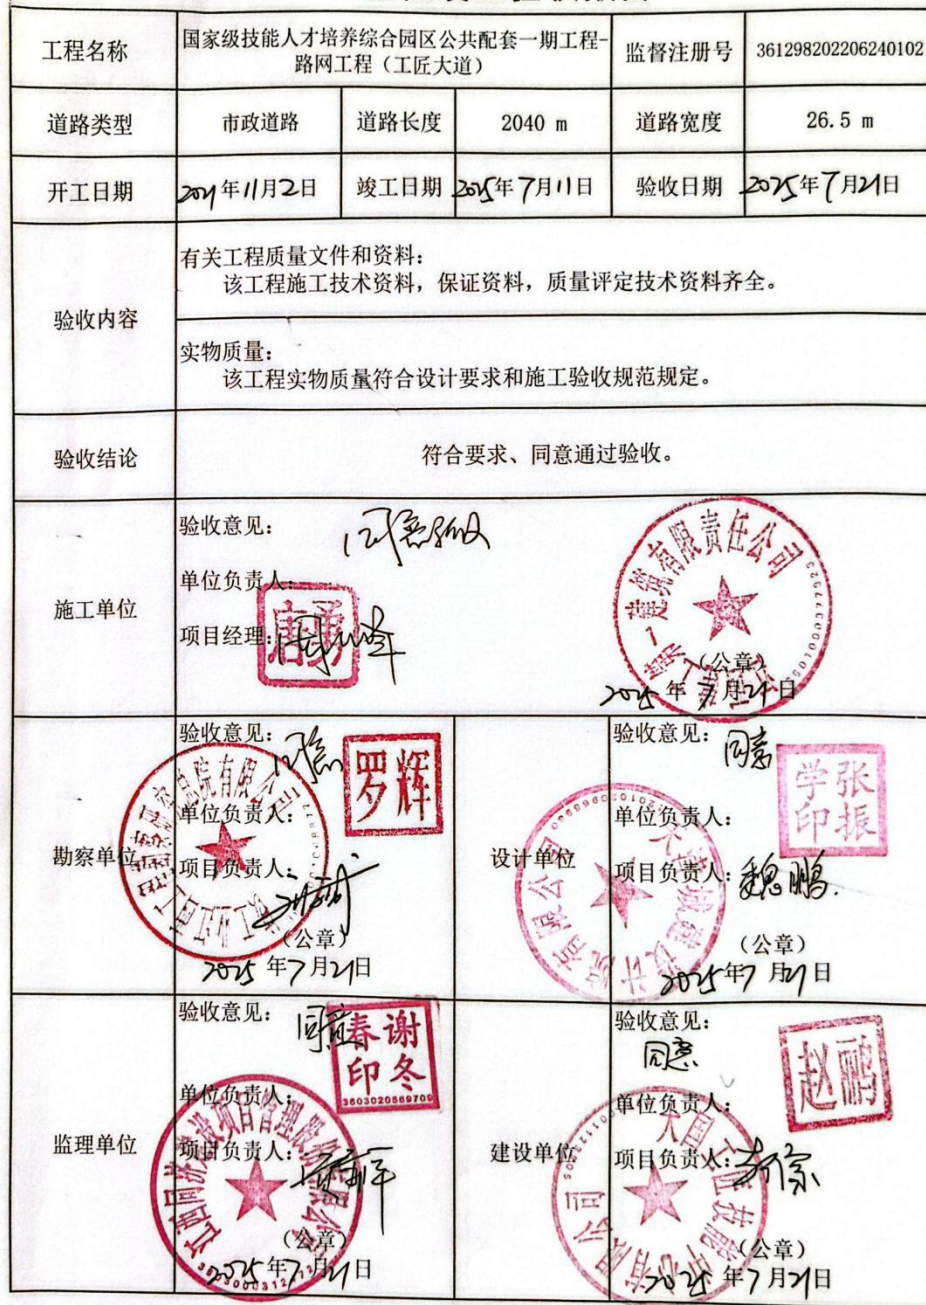 工程名称
国家级技能人才培养综合园区公共配套一期工程-
路网工程（工匠大道）
监督注册号
361298202206240102
道路类型
市政道路
道路长度
2040 m
道路宽度
26.5 m
开工日期
2021年11月2日
竣工日期
2025年7月11日
验收日期
2025年7月21日
验收内容
有关工程质量文件和资料：
该工程施工技术资料，保证资料，质量评定技术资料齐全。
实物质量：
该工程实物质量符合设计要求和施工验收规范规定。
验收结论
符合要求、同意通过验收。
施工单位
验收意见： 同意验收
单位负责人：
唐勇
项目经理：
一建筑有限责任公司
（公章）
2025年7月21日
勘察单位
验收意见： 同意
罗辉
单位负责人：
项目负责人：
（公章）
2025年7月21日
设计单位
验收意见： 同意
张振
学印
单位负责人：
项目负责人：魏鹏.
城建设计院有限公司
（公章）
2025年7月21日
监理单位
验收意见： 同意
谢冬
春印
3603020569709
单位负责人：
项目负责人：
江西同济建设项目管理股份有限公司
（公章）
2025年7月21日
建设单位
验收意见：
同意
赵鹏
单位负责人：
项目负责人：
大国工匠技能中心有限公司
（公章）
2025年7月21日